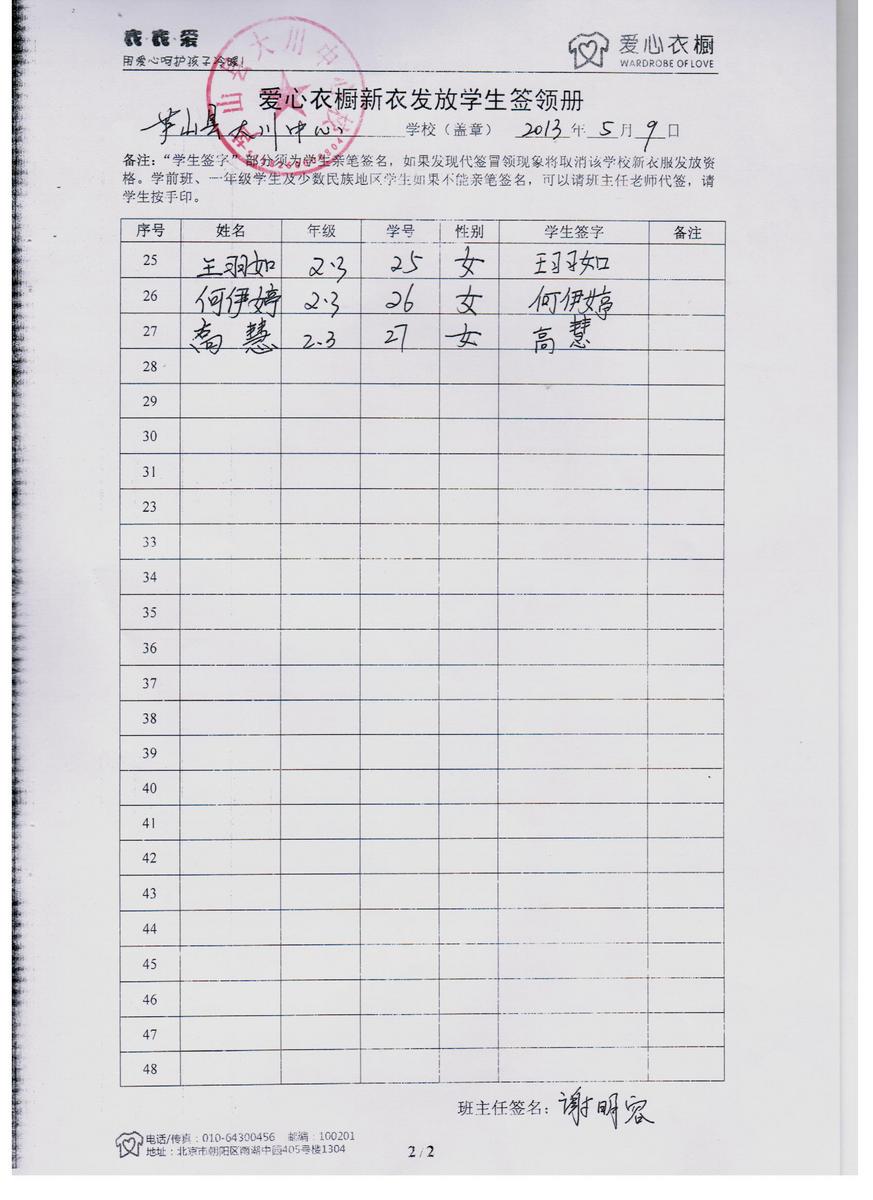 衣衣爱
用爱心呵护孩子冷暖!
爱心衣橱
WARDROBE OF LOVE
山县大川中心校
爱心衣橱新衣发放学生签领册
芦山县大川中心 学校（盖章） 2013年5月9日
备注：“学生签字”部分须为学生亲笔签名，如果发现代签冒领现象将取消该学校新衣服发放资
格。学前班、一年级学生及少数民族地区学生如果不能亲笔签名，可以请班主任老师代签，请
学生按手印。
序号 姓名 年级 学号 性别 学生签字 备注
25 王羽如 2.3 25 女 王羽如
26 何伊婷 2.3 26 女 何伊婷
27 高慧 2.3 27 女 高慧
28
29
30
31
23
33
34
35
36
37
38
39
40
41
42
43
44
45
46
47
48
班主任签名：谢明容
电话/传真：010-64300456 邮编：100201
地址：北京市朝阳区南湖中园405号楼1304
2/2